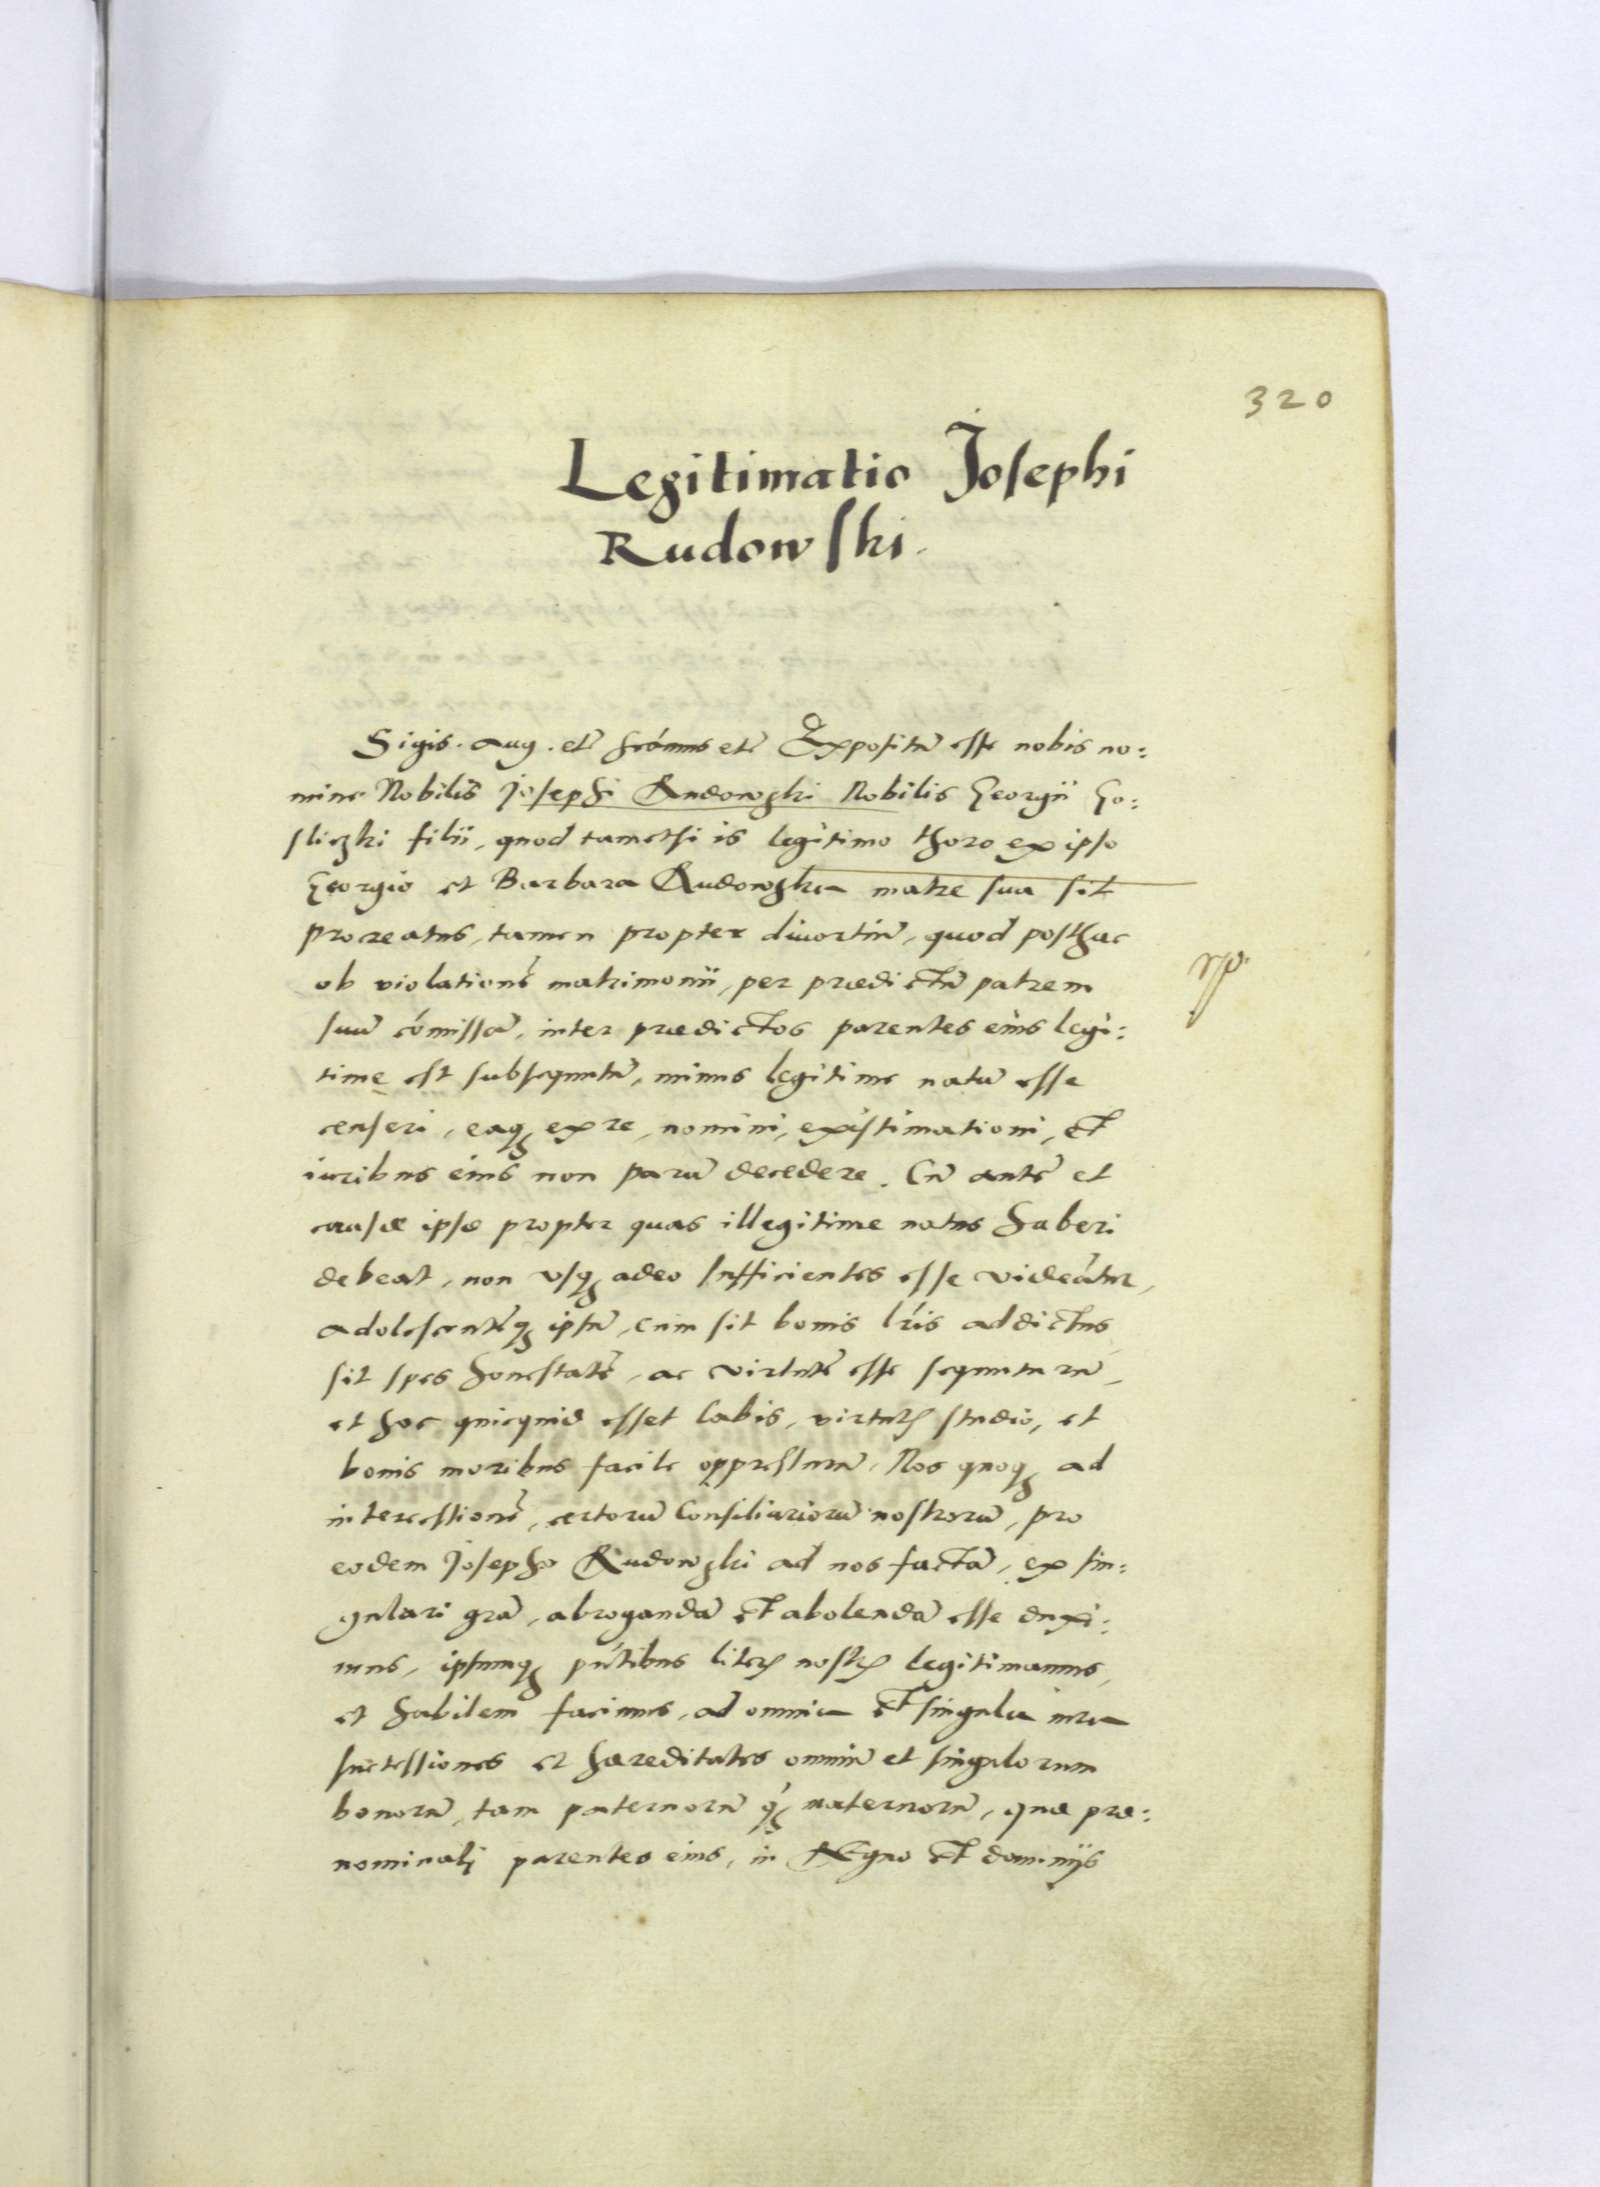 320
Legitimatio Josephi
Rudowski.
Sigis. Aug. etc̃ Expositũ esse nobis no:
mine Nobilis Josephi Rudowski Nobilis Georgii Go:
sliczki filii, quod tametsi is legitimo thoro ex ipso
Georgio et Barbara Rudowska matre sua sit
procreatus, tamen propter diuortiũ, quod posthac
ob violationẽ matrimonii, per prædictũ patrem
suũ cõmissã, inter prædictos parentes eius legi:
time est subsequutũ, minus legitime natũ esse
censeri, eaq₃ ex re, nomini, existimationi, et
iuribus eius non parũ decedere. Cũ autẽ et
causæ ipsæ propter quas illegitime natus haberi
debeat, non vsq₃ adeo sufficientes esse videãtur,
adolescentẽq₃ ipsũ, cum sit bonis lr̃is addictus
sit spes honestatẽ, ac virtutẽ esse sequuturũ,
et hoc quicquid esset labis, virtutis studio, et
bonis moribus facile oppressurũ, Nos quoq₃ ad
intercessionẽ, certorũ Consiliariorũ nostrorũ, pro
eodem Josepho Rudowski ad nos factã, ex sin:
gulari gr̃a, abrogandã et abolendã esse duxi:
mus, ipsumq₃ pñtibus literis nostris legitimamus,
et habilem facimus, ad omnia et singula iura
successiones et hæreditates omniũ et singulorum
bonorũ, tam paternorũ q̃₃ maternorũ, quæ præ:
nominati parentes eius, in Regno et dominijs